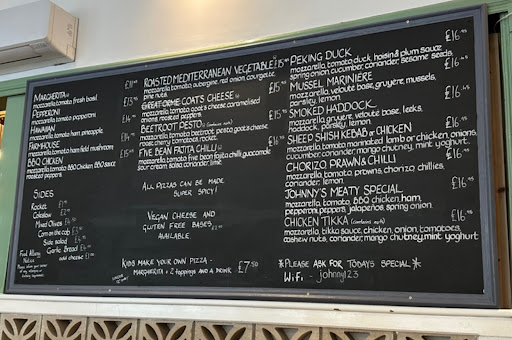 MARGHERITA £11.45
mozzarella, tomato, fresh basil
PEPPERONI £13.95
mozzarella, tomato, pepperoni
HAWAIIAN
mozzarella, tomato, ham, pineapple
FARMHOUSE
mozzarella, tomato, ham, field mushroom
BBQ CHICKEN £15
mozzarella, tomato, BBQ Chicken, BBQ sauce
roasted peppers.
SIDES
Rocket
Coleslaw
Mixed Olives
Corn on the cob
Side salad
Garlic Bread
add cheese
Food Allergy
Notice
ROASTED MEDITERRANEAN VEGETABLE £15.45
mozzarella, tomato, aubergine, red onion, courgette,
pine nuts.
GREAT ORME GOATS CHEESE
mozzarella, tomato, goats cheese, caramelised
onions, roasted peppers
BEETROOT PESTO (contains nuts)
mozzarella, tomato, beetroot pesto, goats cheese,
rose cherry tomatoes, rocket
FIVE BEAN FAJITA CHILLI
mozzarella, tomato, five bean fajita chilli, guacamole
sour cream, salsa, coriander, lime.
ALL PIZZAS CAN BE MADE
SUPER SPICY!
VEGAN CHEESE AND
GLUTEN FREE BASES
AVAILABLE.
KIDS MAKE YOUR OWN PIZZA -
MARGHERITA + 2 toppings AND A DRINK £7.50
PEKING DUCK £16.95
mozzarella, tomato, duck, hoisin & plum sauce
spring onion, cucumber, coriander, sesame seeds.
MUSSEL MARINIÈRE £16.45
mozzarella, veloute base, gruyere, mussels,
parsley, lemon
SMOKED HADDOCK £16.45
mozzarella, gruyere, veloute base, leeks,
haddock, parsley, lemon
SHEEP SHISH KEBAB or CHICKEN £16.95
mozzarella, tomato, marinated lamb or chicken, onions,
cucumber, coriander, mango chutney, mint yoghurt.
CHORIZO PRAWN & CHILLI £16.95
mozzarella, tomato, prawns, chorizo, chillies,
coriander, lemon.
JOHNNY'S MEATY SPECIAL £16.95
mozzarella, tomato, BBQ chicken, ham,
pepperoni, peppers, jalapeños, spring onion.
CHICKEN TIKKA (contains nuts) £16.95
mozzarella, tikka sauce, chicken, onion, tomatoes,
cashew nuts, coriander, mango chutney, mint yoghurt
*PLEASE ASK FOR TODAYS SPECIAL*
WiFi - johnny123